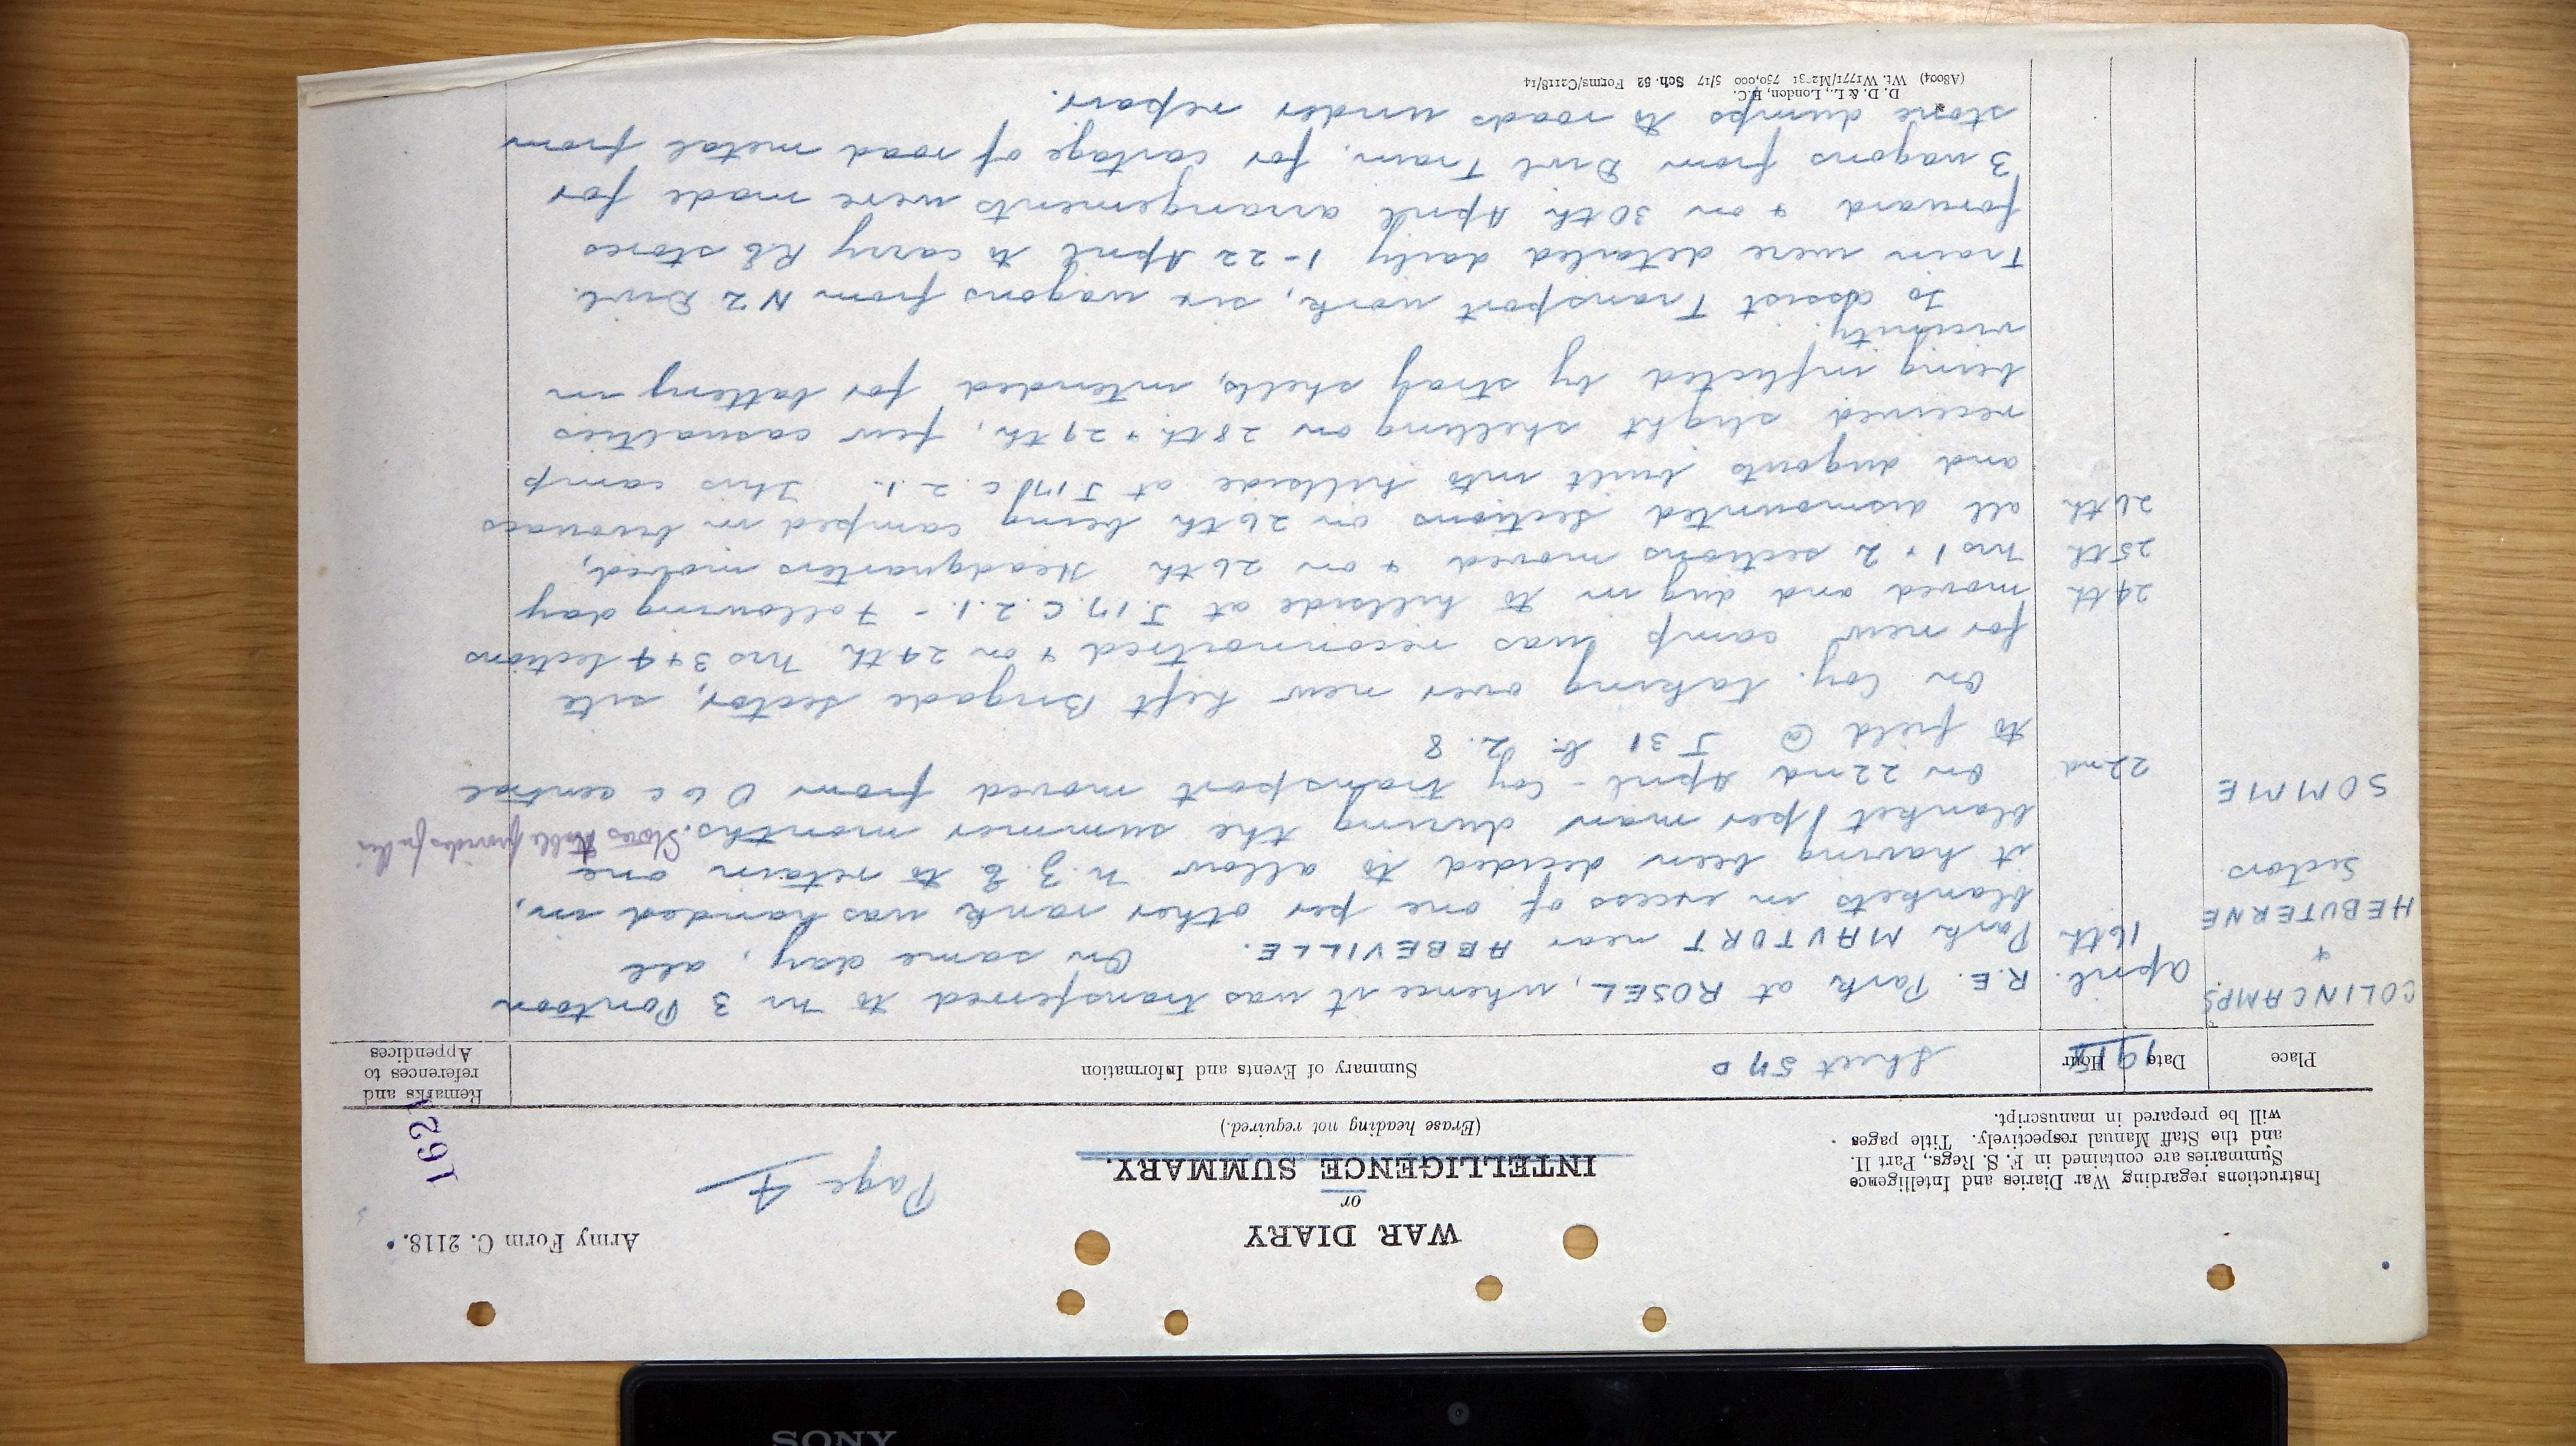 Army Form C. 2118.
WAR DIARY
or
INTELLIGENCE SUMMARY.
(Erase heading not required.)
Page 4
1629
Instructions regarding War Diaries and Intelligence
Summaries are contained in F. S. Regs., Part II.
and the Staff Manual respectively. Title pages
will be prepared in manuscript.
Place
Date
Hour
1918
Sheet 57 D
Summary of Events and Information
Remarks and
references to
Appendices
COLINCAMPS
+
HEBUTERNE
Sectors
SOMME
April.
16th
22nd
24th
25th
26th
R.E. Park at ROSEL, whence it was transferred to No 3 Pontoon
Park MAUTORT near ABBEVILLE. On same day, all
blankets in excess of one per other rank was handed in,
it having been decided to allow N.Z.E to retain one
blanket per man during the summer months. Stores
On 22nd April - Coy transport moved from O 6 c central
to field @ J 31 b. 2. 8
On Coy. taking over new Left Brigade Sector, site
for new camp was reconnoitred + on 24th. Nos 3+4 Sections
moved and dug in to hillside at J.17.C.2.1. - Following day
Nos 1 + 2 sections moved + on 26th Headquarters moved,
all dismounted sections on 26th being camped in bivouacs
and dugouts built into hillside at J17.c.2.1. This camp
received slight shelling on 28th + 29th, few casualties
being inflicted by stray shells, intended for battery in
vicinity.
To assist Transport work, six wagons from NZ Divl.
Train were detailed daily 1-22 April to carry RE stores
forward + on 30th April arrangements were made for
3 wagons from Divl Train, for cartage of road metal from
stone dumps to roads under repair.
D. D. & L., London, E.C.
(A8004) Wt. W1771/M2031 750,000 5/17 Sch. 52 Forms/C2118/14
SONY